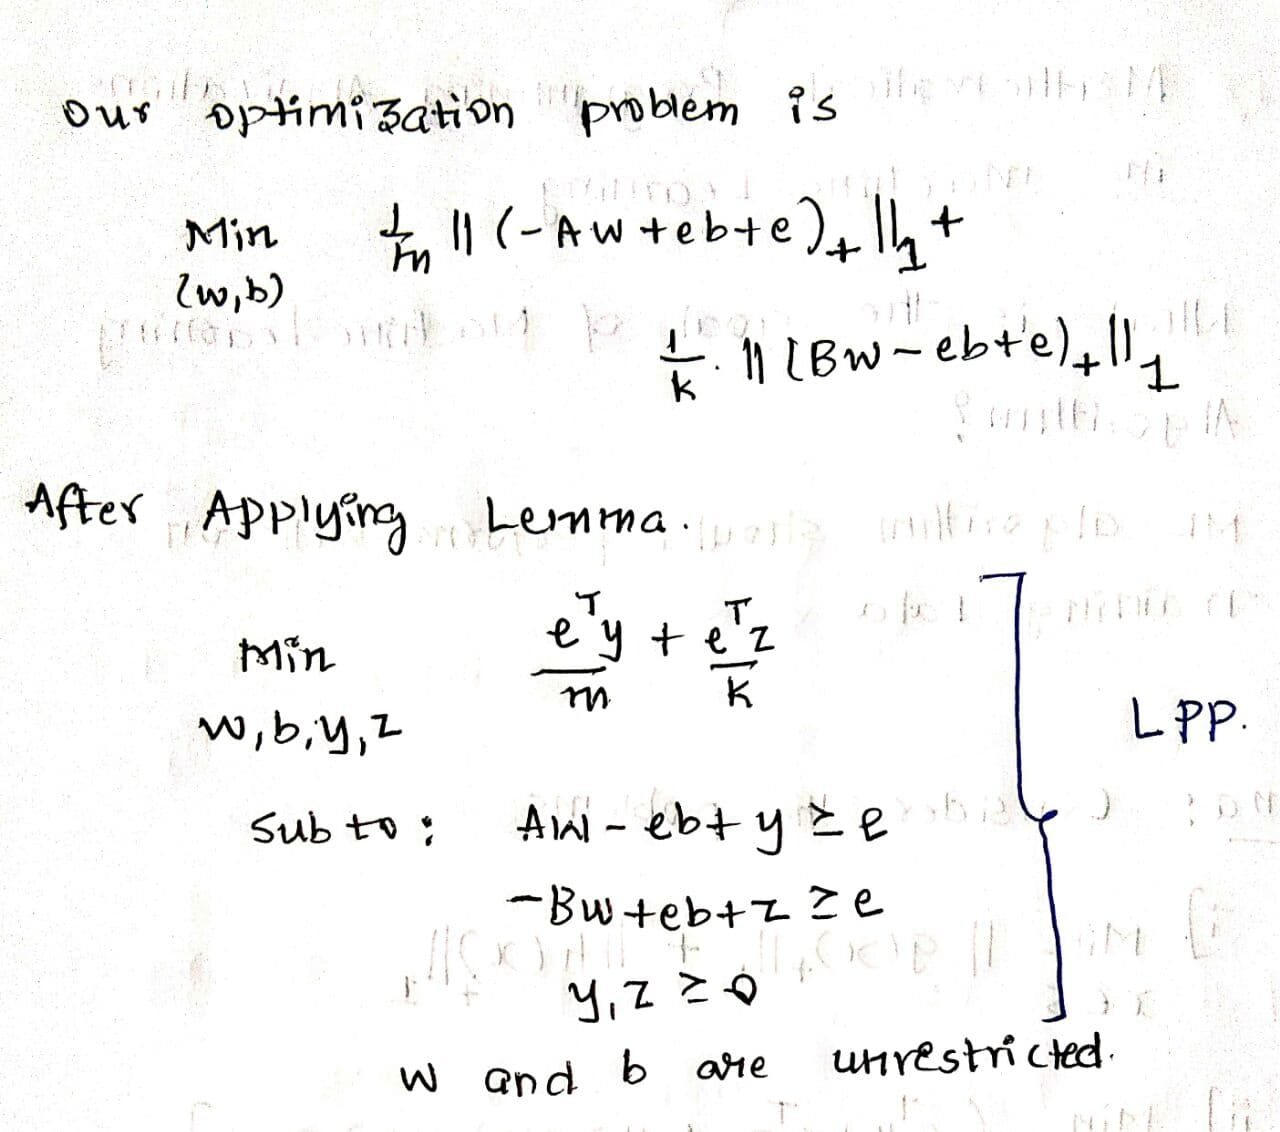 Our optimization problem is
Min 1/m || (-Aw + eb + e)₊ ||₁ +
(w,b)
1/k . || (Bw - eb + e)₊ ||₁
After Applying Lemma.
Min eᵀy/m + eᵀz/k
w,b,y,z
LPP.
Sub to : Aw - eb + y ≥ e
-Bw + eb + z ≥ e
y,z ≥ 0
w and b are unrestricted.